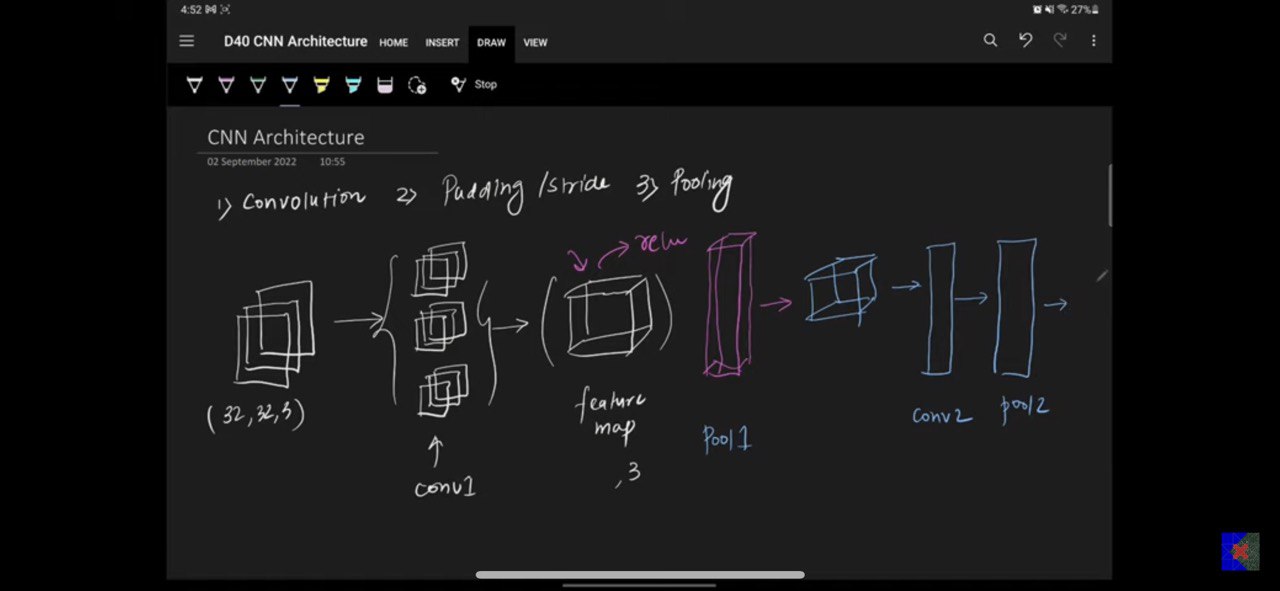 4:52
27%
D40 CNN Architecture HOME INSERT DRAW VIEW
Stop
CNN Architecture
02 September 2022 10:55
1) Convolution 2) Padding /stride 3) Pooling
relu
(32,32,3)
feature
map
, 3
conv1
Pool 1
conv2
pool 2